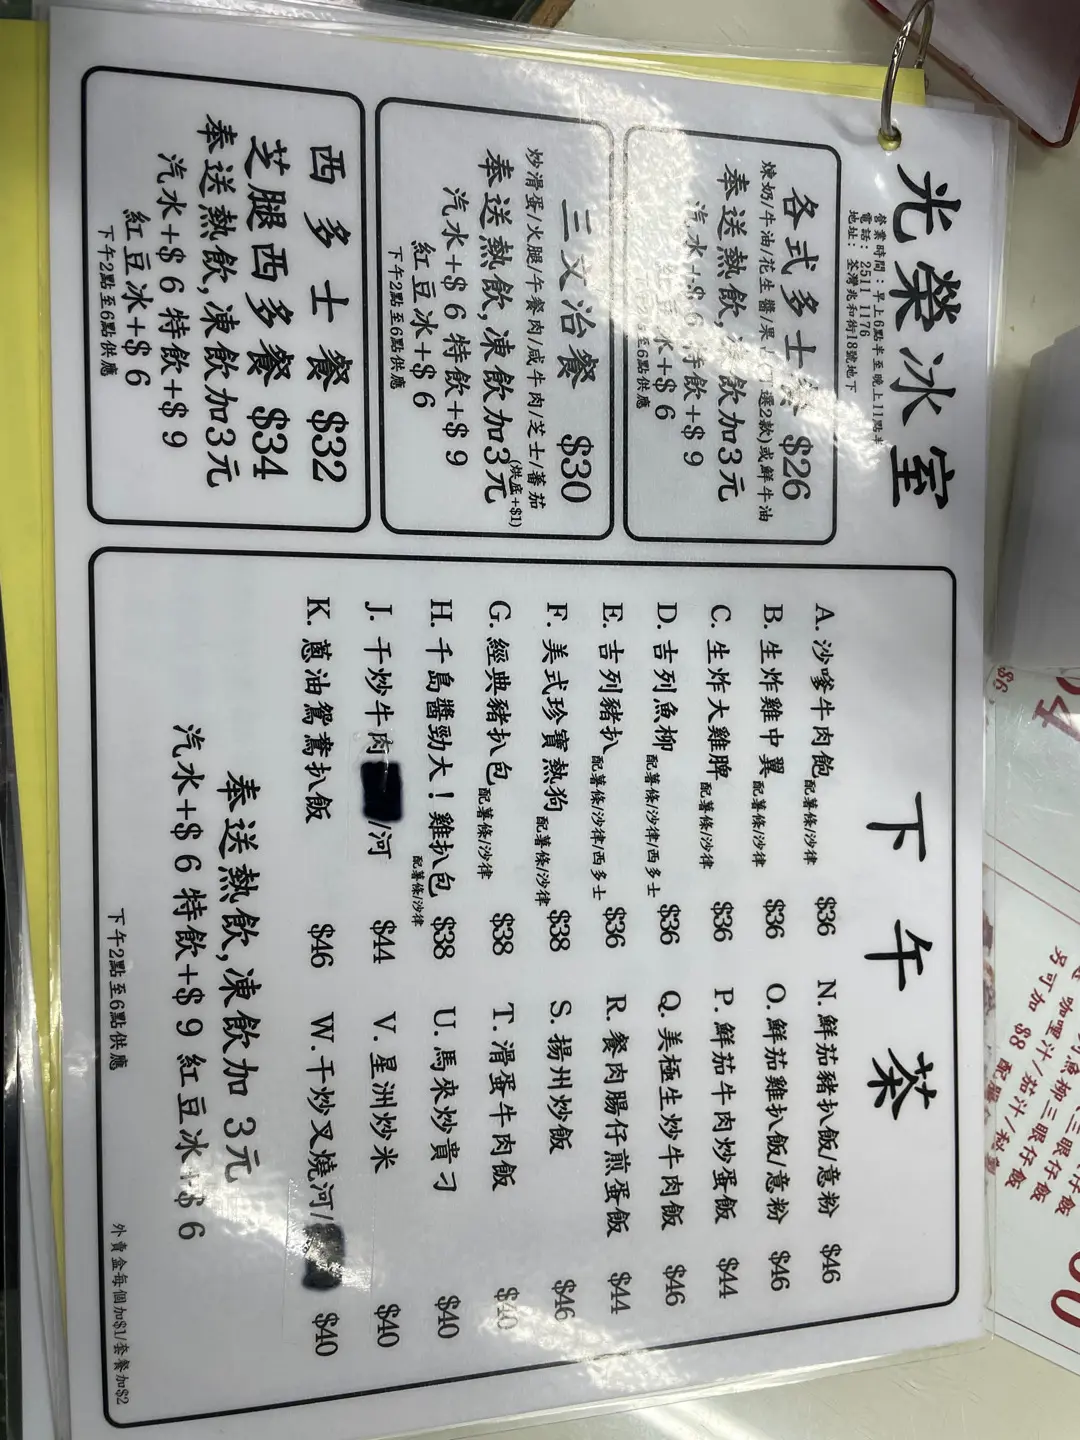 光榮冰室
營業時間：平上6點半至晚上11點半
電話：2511 1176
地址：荃灣兆和街18號地下
各式多士餐 $26
煉奶/牛油/花生醬/果 選2款)或鮮牛油
奉送熱飲,凍飲加3元
汽水+$6 特飲+$9
紅豆冰+$6
至6點供應
三文治餐 $30
炒滑蛋/火腿/午餐肉/咸牛肉/芝士/蕃茄
(烘底+$1)
奉送熱飲,凍飲加3元
汽水+$6 特飲+$9
紅豆冰+$6
下午2點至6點供應
西多士餐 $32
芝腿西多餐 $34
奉送熱飲,凍飲加3元
汽水+$6 特飲+$9
紅豆冰+$6
下午2點至6點供應
下午茶
A. 沙嗲牛肉飽 配薯條/沙律 $36
B. 生炸雞中翼 配薯條/沙律 $36
C. 生炸大雞脾 配薯條/沙律 $36
D. 吉列魚柳 配薯條/沙律/西多士 $36
E. 吉列豬扒 配薯條/沙律/西多士 $36
F. 美式珍寶熱狗 配薯條/沙律 $38
G. 經典豬扒包 配薯條/沙律 $38
H. 千島醬勁大！雞扒包 配薯條/沙律 $38
J. 干炒牛肉 /河 $44
K. 蔥油鴛鴦扒飯 $46
N. 鮮茄豬扒飯/意粉 $46
O. 鮮茄雞扒飯/意粉 $46
P. 鮮茄牛肉炒蛋飯 $44
Q. 美極生炒牛肉飯 $46
R. 餐肉腸仔煎蛋飯 $44
S. 揚州炒飯 $46
T. 滑蛋牛肉飯 $40
U. 馬來炒貴刁 $40
V. 星洲炒米 $40
W. 干炒叉燒河/ $40
奉送熱飲,凍飲加 3元
汽水+$6 特飲+$9 紅豆冰+$6
下午2點至6點供應
外賣盒每個加$1/套餐加$2
另可加 $8 配